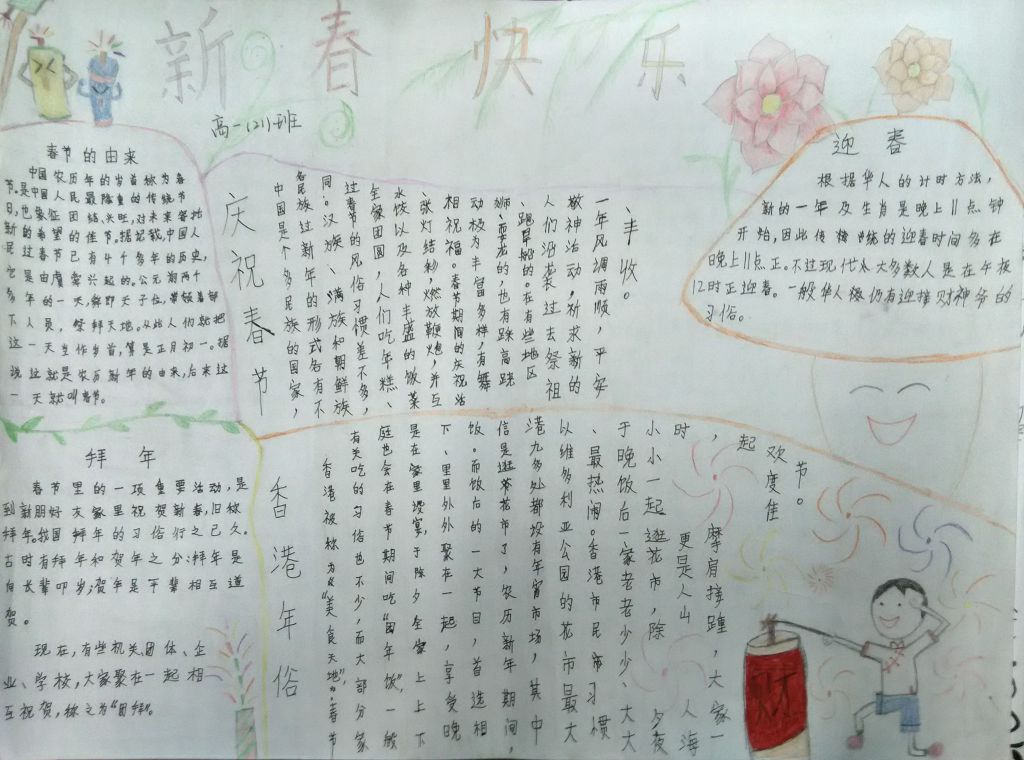 新春快乐
高一(21)班
春节的由来
中国农历年的岁首称为春
节。是中国人民最隆重的传统节
日。也象征团结、兴旺,对未来寄托
新的希望的佳节。据记载,中国人
民过春节已有4千多年的历史,
它是由虞舜兴起的。公元前两千
多年的一天,舜即天子位,带领着部
下人员,祭拜天地。从此人们就把
这一天当作岁首,算是正月初一。据
说这就是农历新年的由来,后来这
一天就叫春节。
庆祝春节
中国是个多民族的国家,
各民族过新年的形式各有不
同。汉族、满族和朝鲜族
过春节的风俗习惯差不多,
全家团圆,人们吃年糕、
水饺以及各种丰盛的饭菜
、张灯结彩,燃放鞭炮,并互
相祝福。春节期间的庆祝活
动极为丰富多样,有舞
狮、耍龙的,也有踩高跷
、跑旱船的。在有些地区
人们沿袭过去祭祖
敬神活动,祈求新的
一年风调雨顺,平安
、丰收。
迎春
根据华人的计时方法,
新的一年及生肖是晚上11点钟
开始,因此传统的迎春时间多在
晚上11点正。不过现代大多数人是在午夜
12时正迎春。一般华人仍有迎接财神爷的
习俗。
拜年
春节里的一项重要活动,是
到新朋好友家里祝贺新春,旧称
拜年。我国拜年的习俗行之已久。
古时有拜年和贺年之分:拜年是
向长辈叩岁;贺年是平辈相互道
贺。
现在,有些机关、团体、企
业、学校,大家聚在一起相
互祝贺,称之为“团拜”。
香港年俗
香港被称为“美食天地”,春节
有关吃的习俗也不少,而大部分家
庭也会在春节期间吃“团年饭”,一般
是在家里设宴,于除夕全家上上下
下、里里外外聚在一起,享受晚
饭。而饭后的一大节目,首选相
信是逛花市了,农历新年期间,
港九多处都设有年宵市场,其中
以维多利亚公园的花市最大
、最热闹。香港市民习惯
于晚饭后一家老老少少、大大
小小一起逛花市,除夕夜
时,更是人山人海
,摩肩接踵,大家一
起欢度佳
节。
财